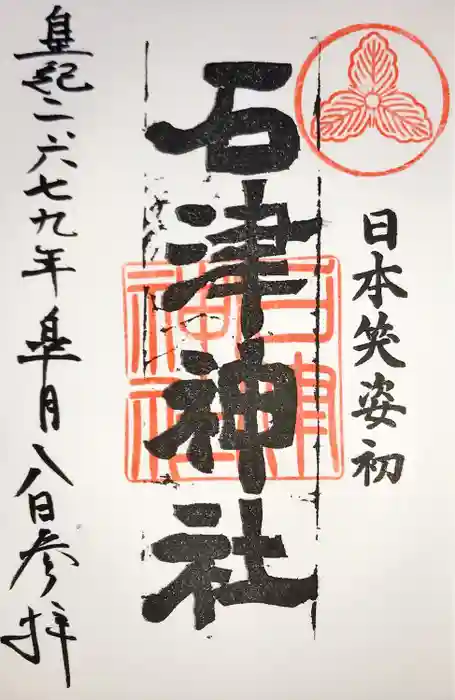 日本笑姿初
石津神社
石津
神社
皇紀二六七九年 皐月八日参拝